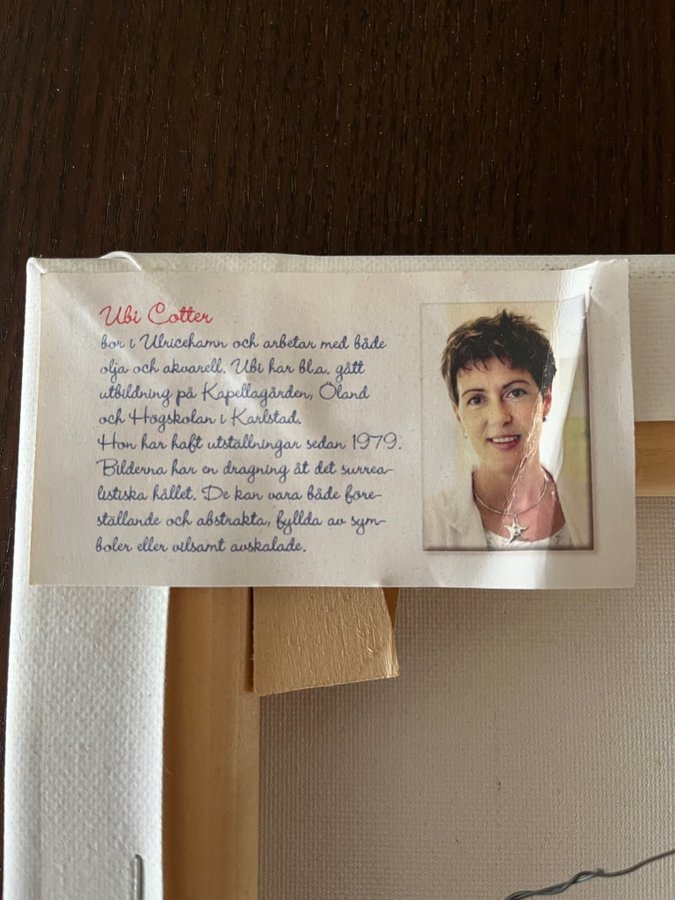 Ubi Cotter
bor i Ulricehamn och arbetar med både
olja och akvarell. Ubi har bl.a. gått
utbildning på Kapellagården, Öland
och Högskolan i Karlstad.
Hon har haft utställningar sedan 1979.
Bilderna har en dragning åt det surrea-
listiska hållet. De kan vara både före-
ställande och abstrakta, fyllda av sym-
boler eller vilsamt avskalade.